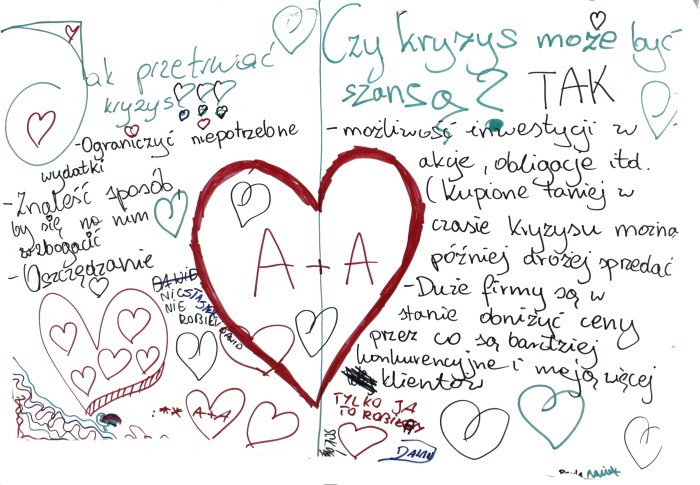 Jak przetrwać
kryzys???
- Ograniczyć niepotrzebne
wydatki
- Znaleść sposób,
by się na nim
wzbogacić
- Oszczędzanie
DAWID
NIC STASIEK
NIE
ROBIŁ
DAWID
A+A
Czy kryzys może być
szansą? TAK
- możliwość inwestycji w
akcje, obligacje itd.
(kupione taniej w
czasie kryzysu można
później drożej sprzedać
- Duże firmy są w
stanie doniżyć ceny
przez co są bardziej
konkurencyjne i mają więcej
klientów
A + A
TYLKO JA
TO ROBIŁEM
DAWID